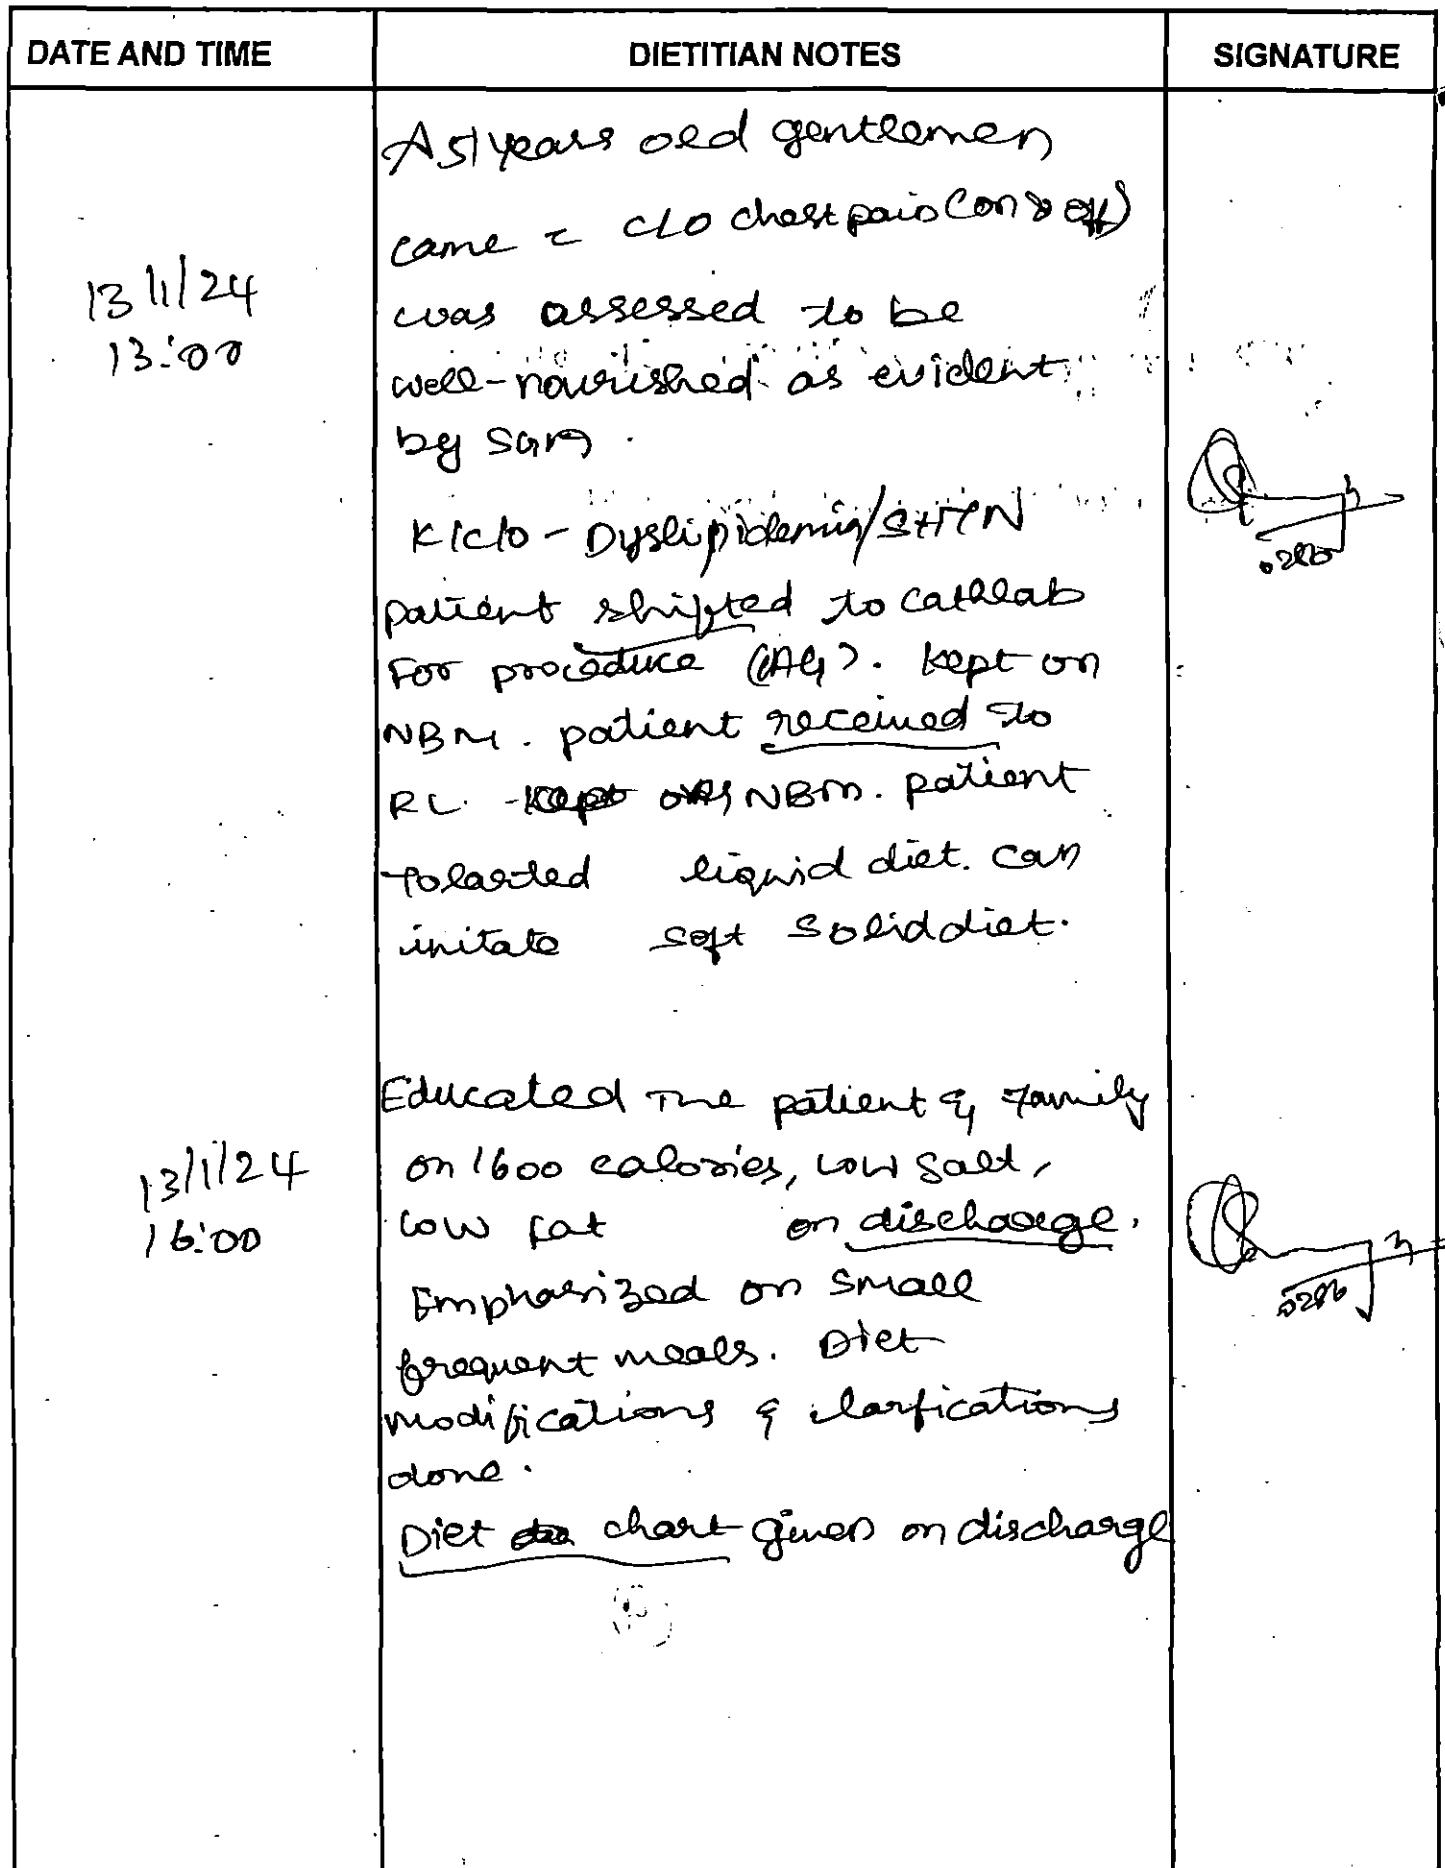 DATE AND TIME DIETITIAN NOTES SIGNATURE
A 51 years old gentlemen
came c c/o chest pain (on & off)
13/1/24
13:00
was assessed to be
well-nourished as evident
by SGA.
K/c/o - Dyslipidemia/SHTN
patient shifted to cathlab
For procedure (CAG). Kept on
NBM. patient received to
RL. Kept NBM. patient
tolarted liquid diet. can
initate soft solid diet.
Educated The patient & family
13/1/24
16:00
on 1600 calories, low salt,
low fat on discharge.
Emphasized on small
frequent meals. Diet
modifications & clarfications
done.
Diet chart given on discharge